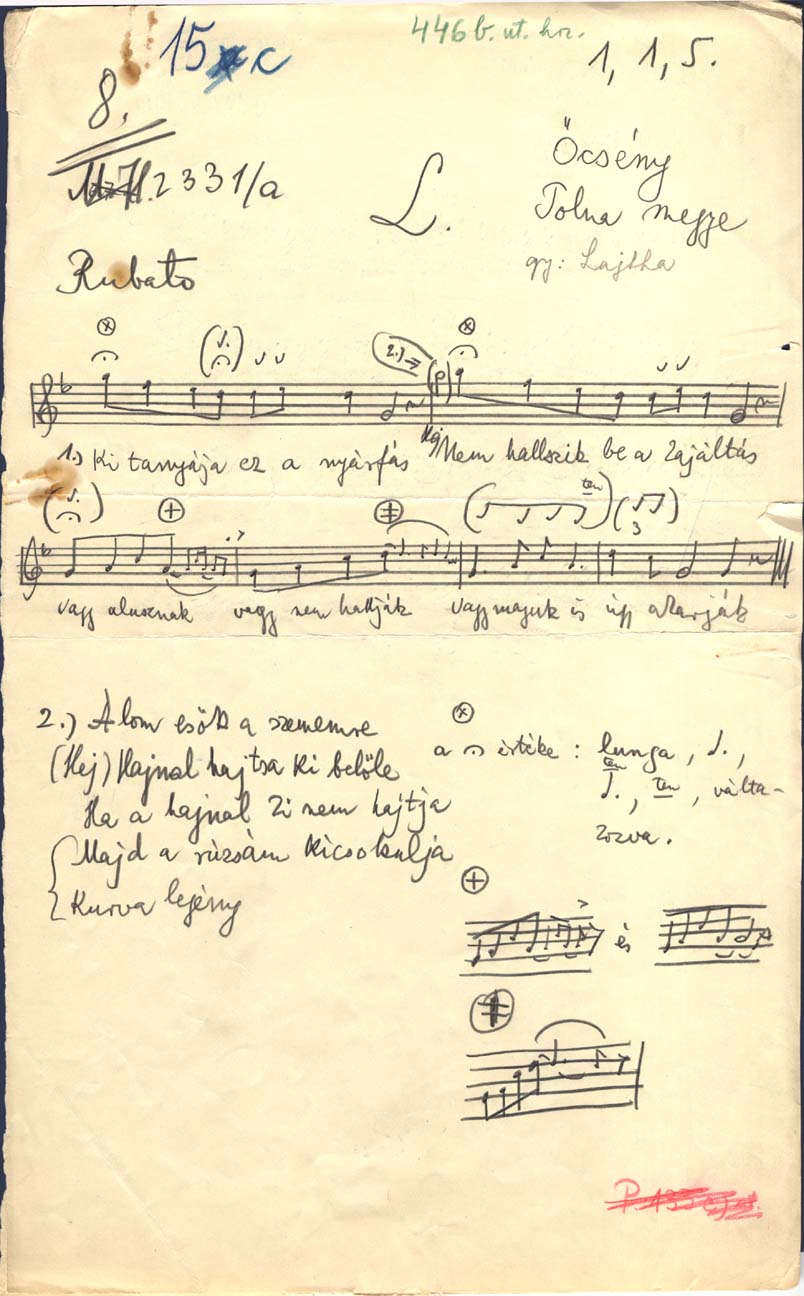 446 b. ut. hoz.
15 c
1, 1, 5.
8.
2331/a
L.
Öcsény
Tolna megye
gy: Lajtha
Rubato
2.)
1.) Ki tanyája ez a nyárfás Hej Nem hallszik be a zajáltás
ten
3
vagy alusznak vagy nem hallják vagy maguk is úgy akarják
2.) Álom esök a szememre
(Hej) Hajnal hajtsa ki belöle
Ha a hajnal ki nem hajtja
Majd a rúzsám kicsókulja
Kurva legény
a értéke : lunga,
ten
ten, válta-
kozva.
és